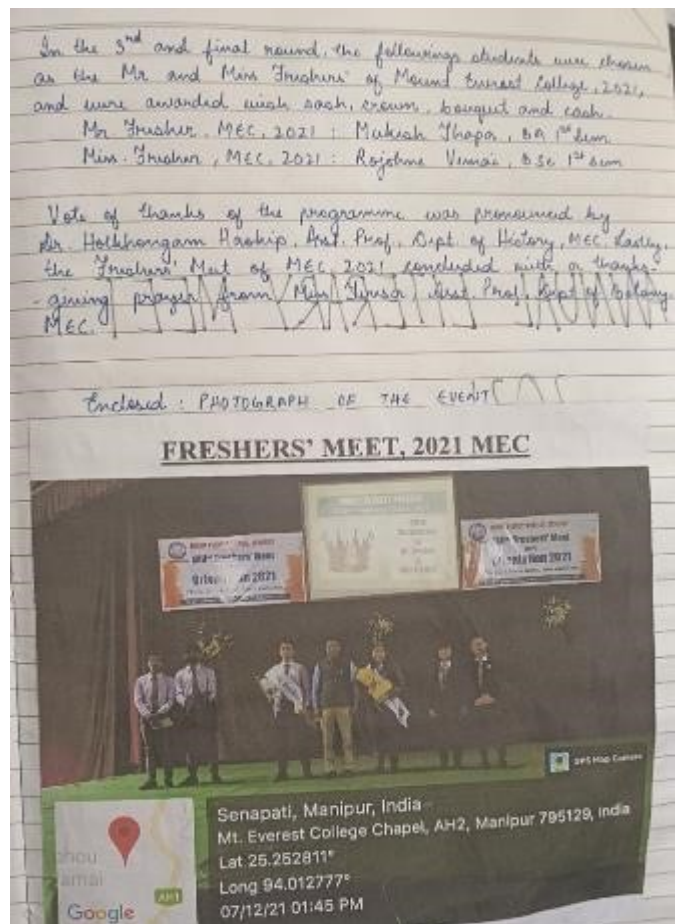 In the 3rd and final round, the followings students were chosen
as the Mr and Miss Freshers' of Mount Everest College, 2021,
and were awarded with sash, crown, bouquet and cash.
Mr Fresher, MEC, 2021 : Mukesh Thapa, BA 1st Sem
Miss. Fresher, MEC, 2021 : BSc 1st Sem
Vote of thanks of the programme was pronounced by
Dr. Holkhongam Haokip, Asst. Prof, Dept. of History, MEC. Lastly,
the Freshers' Meet of MEC, 2021, concluded with a thanks-
-giving prayer from Miss Asst. Prof, Dept of Botany
MEC.
Enclosed : PHOTOGRAPH OF THE EVENT
FRESHERS' MEET, 2021 MEC
GPS Map Camera
Senapati, Manipur, India
Mt. Everest College Chapel, AH2, Manipur 795129, India
Lat 25.252811°
Long 94.012777°
07/12/21 01:45 PM
AH1
Google